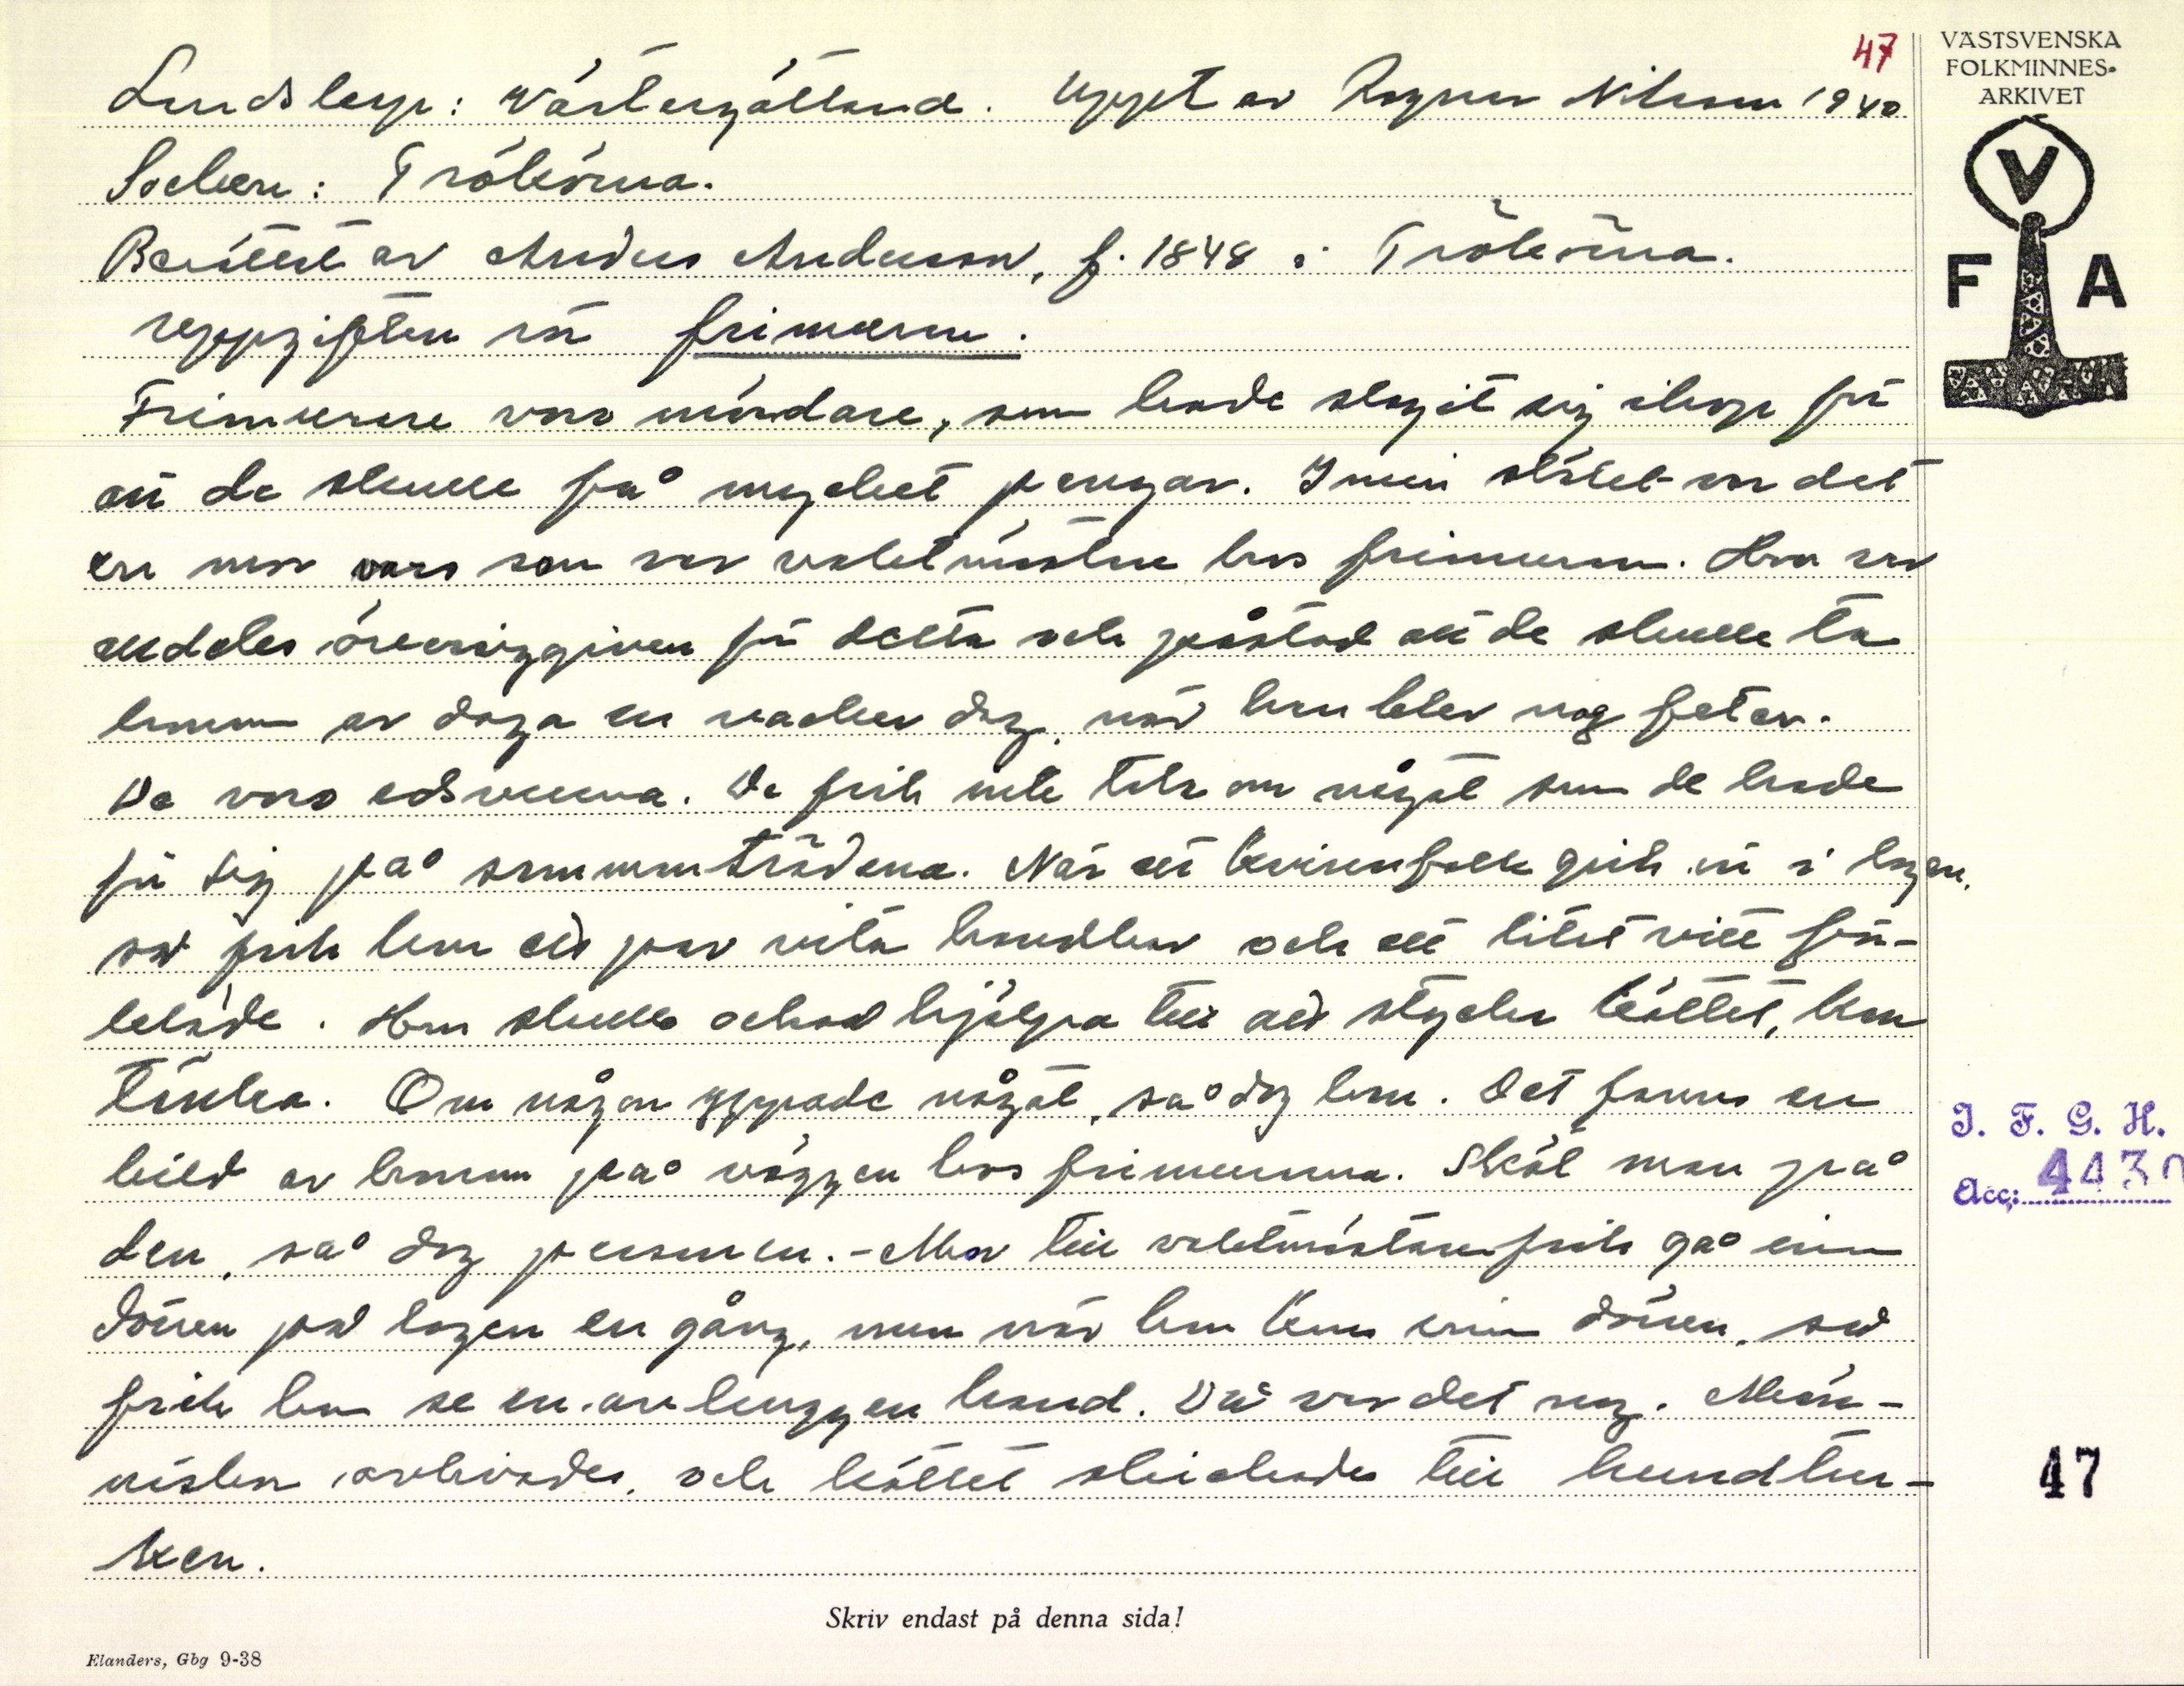 47
VÄSTSVENSKA
FOLKMINNES-
ARKIVET
V
F A
Landskap: Västergötland. Uppt av Ragnar Nilsson 1940
Socken: Trökörna.
Berättat av Anders Andersson, f. 1848 i Trökörna.
Uppgiften rör frimurare.
Frimurare voro mördare, som hade slagit sig ihop för
att de skulle få mycket pengar. I min släkt var det
en mor vars son var vaktmästare hos frimurarna. Hon var
alldeles översiggiven för detta och påstod att de skulle ta
honom av daga en vacker dag, när han blev nog feter.
De voro edsvurna. De fick inte tala om något som de hade
för sig på sammanträdena. När ett kvinnfolk gick in i logen,
så fick hon ett par vita handskar och ett litet vitt för-
kläde. Hon skulle också hjälpa till att stycka köttet, kan
tänka. Om någon yppade något, så dog han. Det fanns en
bild av honom på väggen hos frimurarna. Sköt man på
den, så dog personen. - Mor till vaktmästaren fick gå inom
dörren på logen en gång, men när hon kom inom dörren, så
fick hon se en avhuggen hand. Då var det nog. Män-
niskor avlivades, och köttet skickades till hundtur-
ken.
J. F. G. H.
Acc:
47
Skriv endast på denna sida!
Elanders, Gbg 9-38